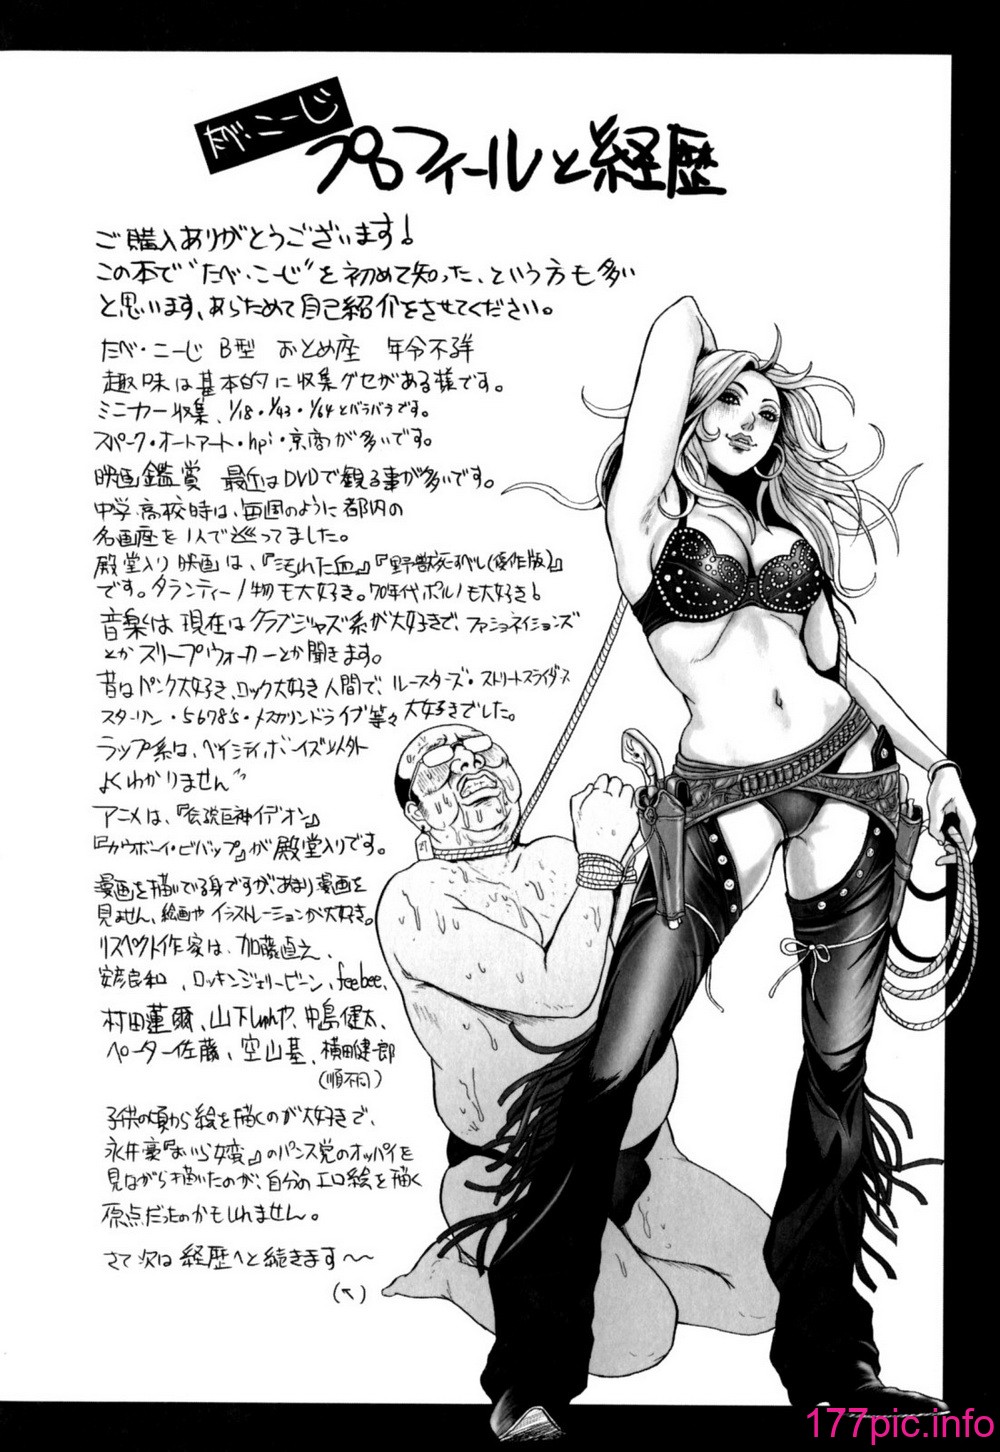 たべ・こーじ
プロフィールと経歴
ご購入ありがとうございます!
この本で“たべ・こーじ”を初めて知った、という方も多い
と思います、あらためて自己紹介をさせてください。
たべ・こーじ B型 おとめ座 年令不詳
趣味は基本的に収集グセがある様です。
ミニカー収集、1/18・1/43・1/64とバラバラです。
スパーク・オートアート・hpi・京商が多いです。
映画鑑賞 最近はDVDで観る事が多いです。
中学、高校時は、毎週のように都内の
名画座を1人で巡ってました。
殿堂入り映画は、『汚れた血』『野獣死すべし(優作版)』
です。タランティーノ物も大好き。70年代ポルノも大好き!
音楽は現在はクラブジャズ系が大好きで、ファショネイションズ
とかスリープウォーカーとか聞きます。
昔はパンク大好き、ロック大好き人間で、ルースターズ・ストリートスライダース
スターリン・5678's・メスカリンドライブ等々大好きでした。
ラップ系は、ベイシティボーイズ以外
よくわかりません”
アニメは、『伝説巨神イデオン』
『カウボーイ・ビバップ』が殿堂入りです。
漫画を描いてる身ですが、あまり漫画を
見ません、絵画やイラストレーションが大好き。
リスペクト作家は、加藤直之、
安彦良和、ロッキンジェリービーン、feebee、
村田蓮爾、山下しゅんや、中島健太、
ペーター佐藤、空山基、横田健一郎
(順不同)
子供の頃から絵を描くのが大好きで、
永井豪『おいら女蛮』のパンス党のオッパイを
見ながら描いたのが、自分のエロ絵を描く
原点だったのかもしれません。
さて次は経歴へと続きます〜〜
(↖)
177pic.info